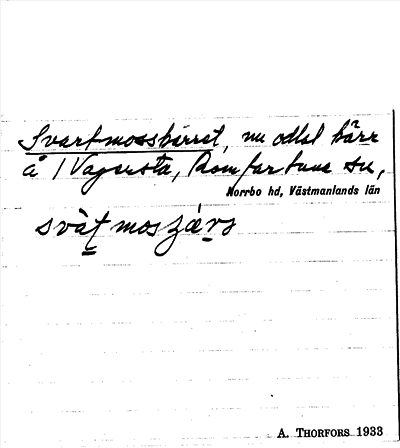 Svartmosskärret, nu odlat kärr
å 1 Vagersta, Romfartuna sn,
Norrbo hd, Västmanlands län
A. THORFORS 1933